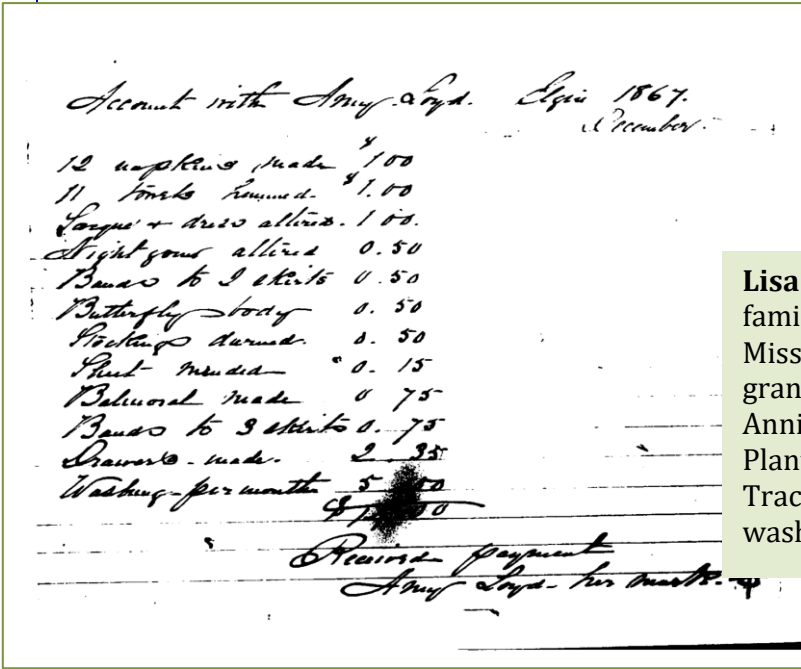 Account with Amy Loyd. Elgin 1867.
December.
$
12 napkins made 1 00
11 towels hemmed. $1.00
Sacque + dress altired. 1 00.
Night gown altired 0.50
Bands to 2 skirts 0.50
Butterfly body 0.50
Stockings darned. 0.50
mended 0.15
Balmoral made 0 75
Bands to 3 skirts 0.75
Drawers made. 2 35
Washing per month 5
$
Received payment
Amy Loyd her mark.
Lisa
fami
Miss
gran
Anni
Plan
Trac
wash